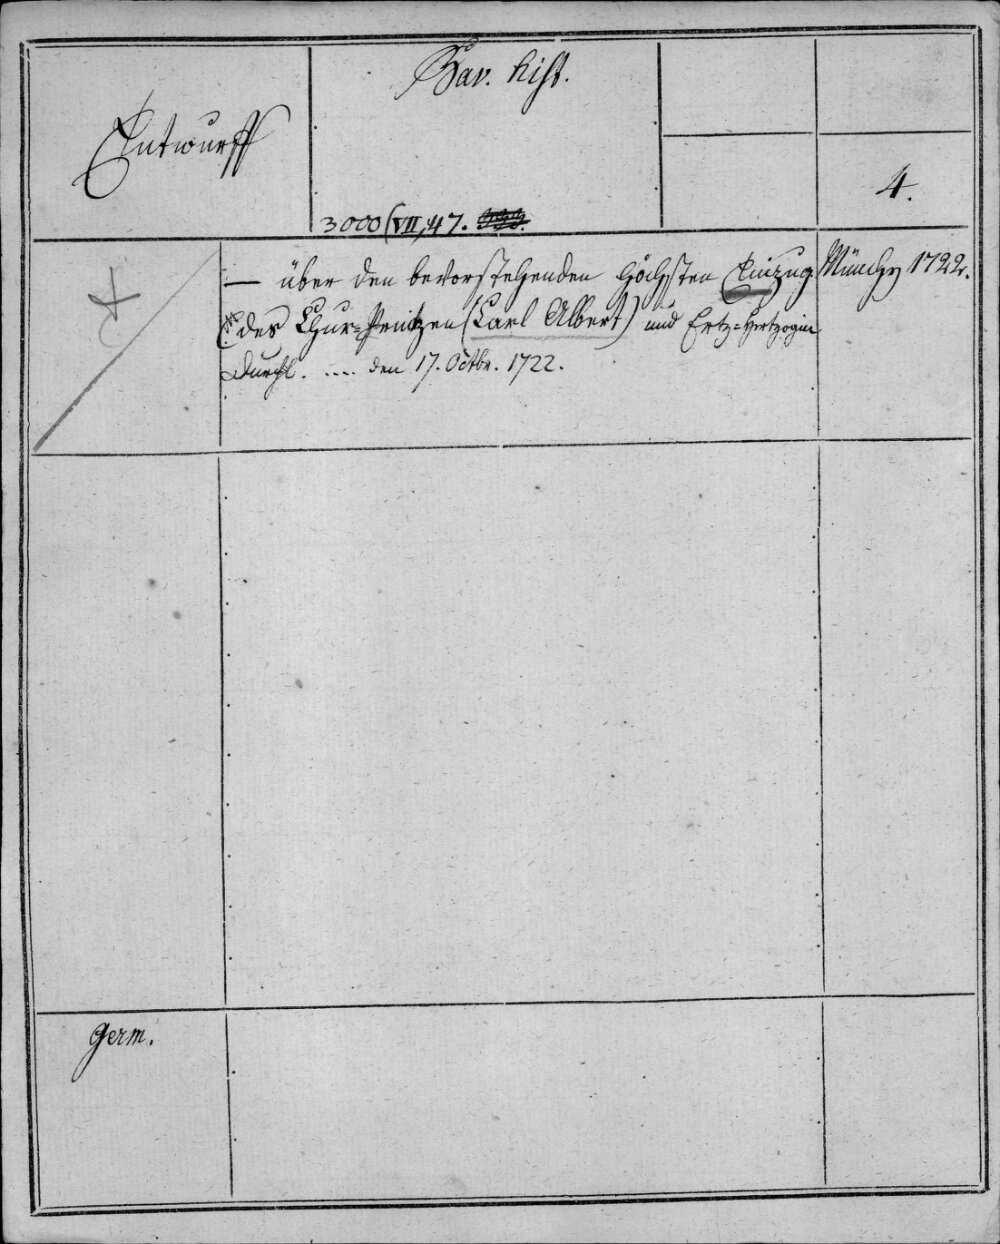 Bav. hist.
Entwurff
4.
3000 (VII, 47.
— über den bevorstehenden Höchsten Einzug
Münch 1722.
des Chur=Printzen (Carl Albert) und Ertz=Hertzogin
Durchl. .... den 17. Octbr. 1722.
germ.